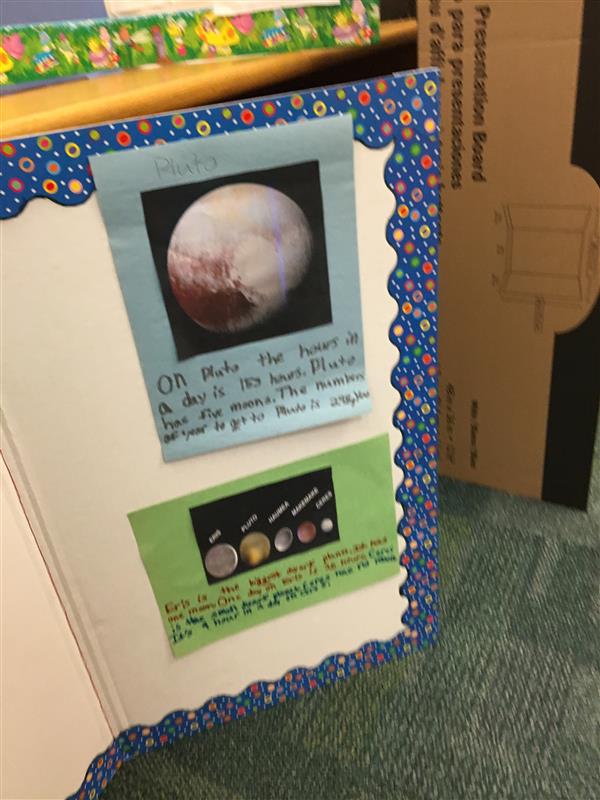 Pluto
On Pluto the hours in
a day is 153 hours. Pluto
has five moons. The number
of year to get to Pluto is
ERIS
PLUTO
HAUMEA
MAKEMAKE
CERES
Eris is the biggest dwarf planet. It has
one moon. One day on Eris is hours. Ceres
is the small dwarf planet. Ceres has no moon
It's 9 hour in a day in
Presentation Board
para presentaciones